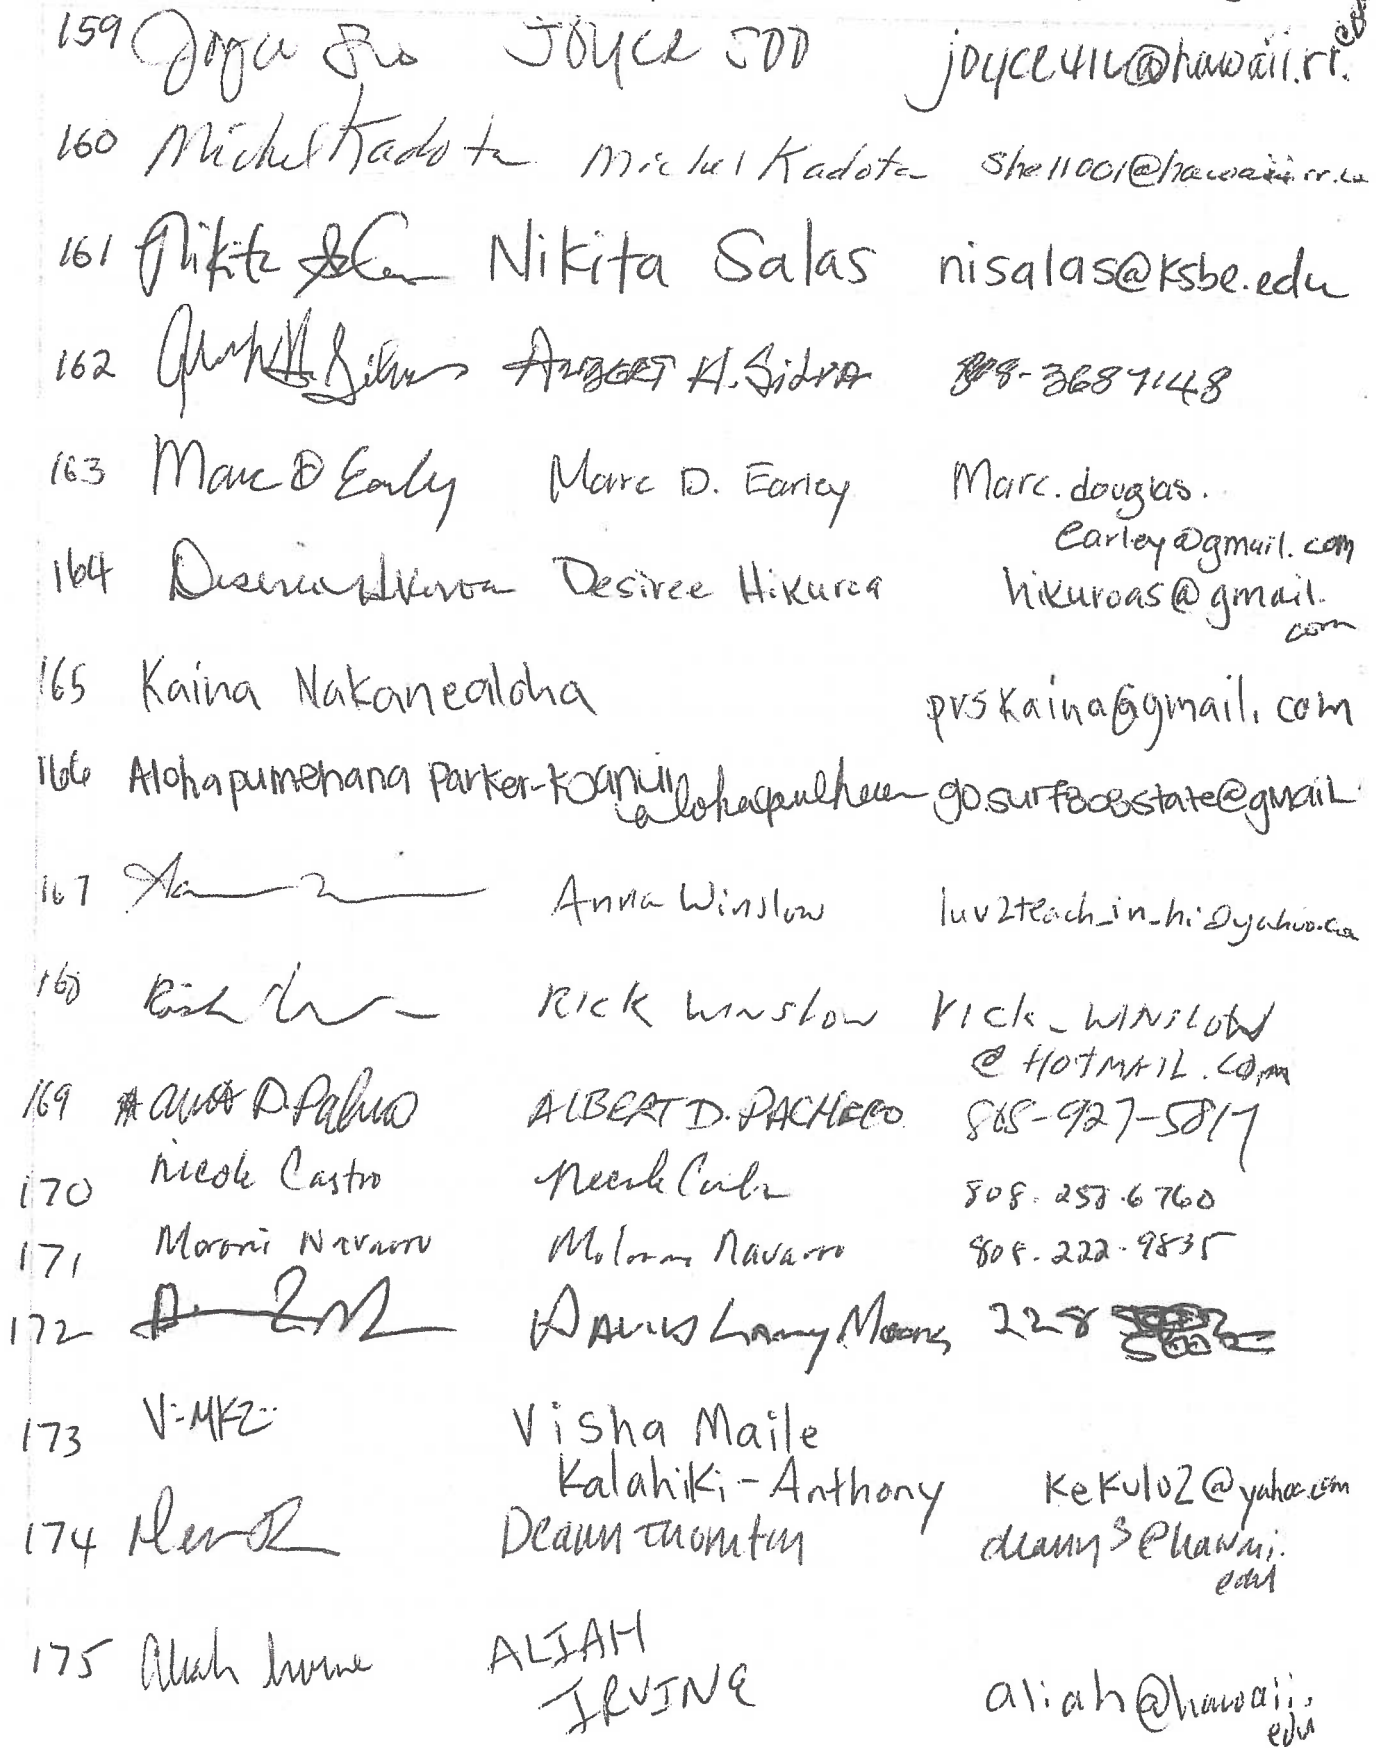 159 Joyce Soo JOYCE SOO joyce414@hawaii.rr.com
160 Michel Kadota Michel Kadota shell001@hawaii.rr.co
161 Nikita Nikita Salas nisalas@ksbe.edu
162 H. Silva H. Silva 808-3687148
163 Marc D Earley Marc D. Earley Marc.douglas.
earley@gmail.com
164 Desiree Hikuroa Desiree Hikuroa hikuroas@gmail.
com
165 Kaina Nakanealoha pvskaina@gmail.com
166 Alohapumehana Parker- go.surf808state@gmail
167 Anna Winslow luv2teach_in_hi@yahoo.co
168 Rick RICK WINSLOW rick_WINSLOW
@HOTMAIL.COM
169 D. Pacheco ALBERT D. PACHECO 808-927-5817
170 Nicole Castro Nicole Castro 808.258.6760
171 Moroni Navarro Navarro 808.222.9835
172 228
173 V-MKZ Visha Maile
Kalahiki-Anthony kekulo2@yahoo.com
174 Deann Thornton deanns@hawaii.
edu
175 Aliah Irvine ALIAH
IRVINE aliah@hawaii.
edu